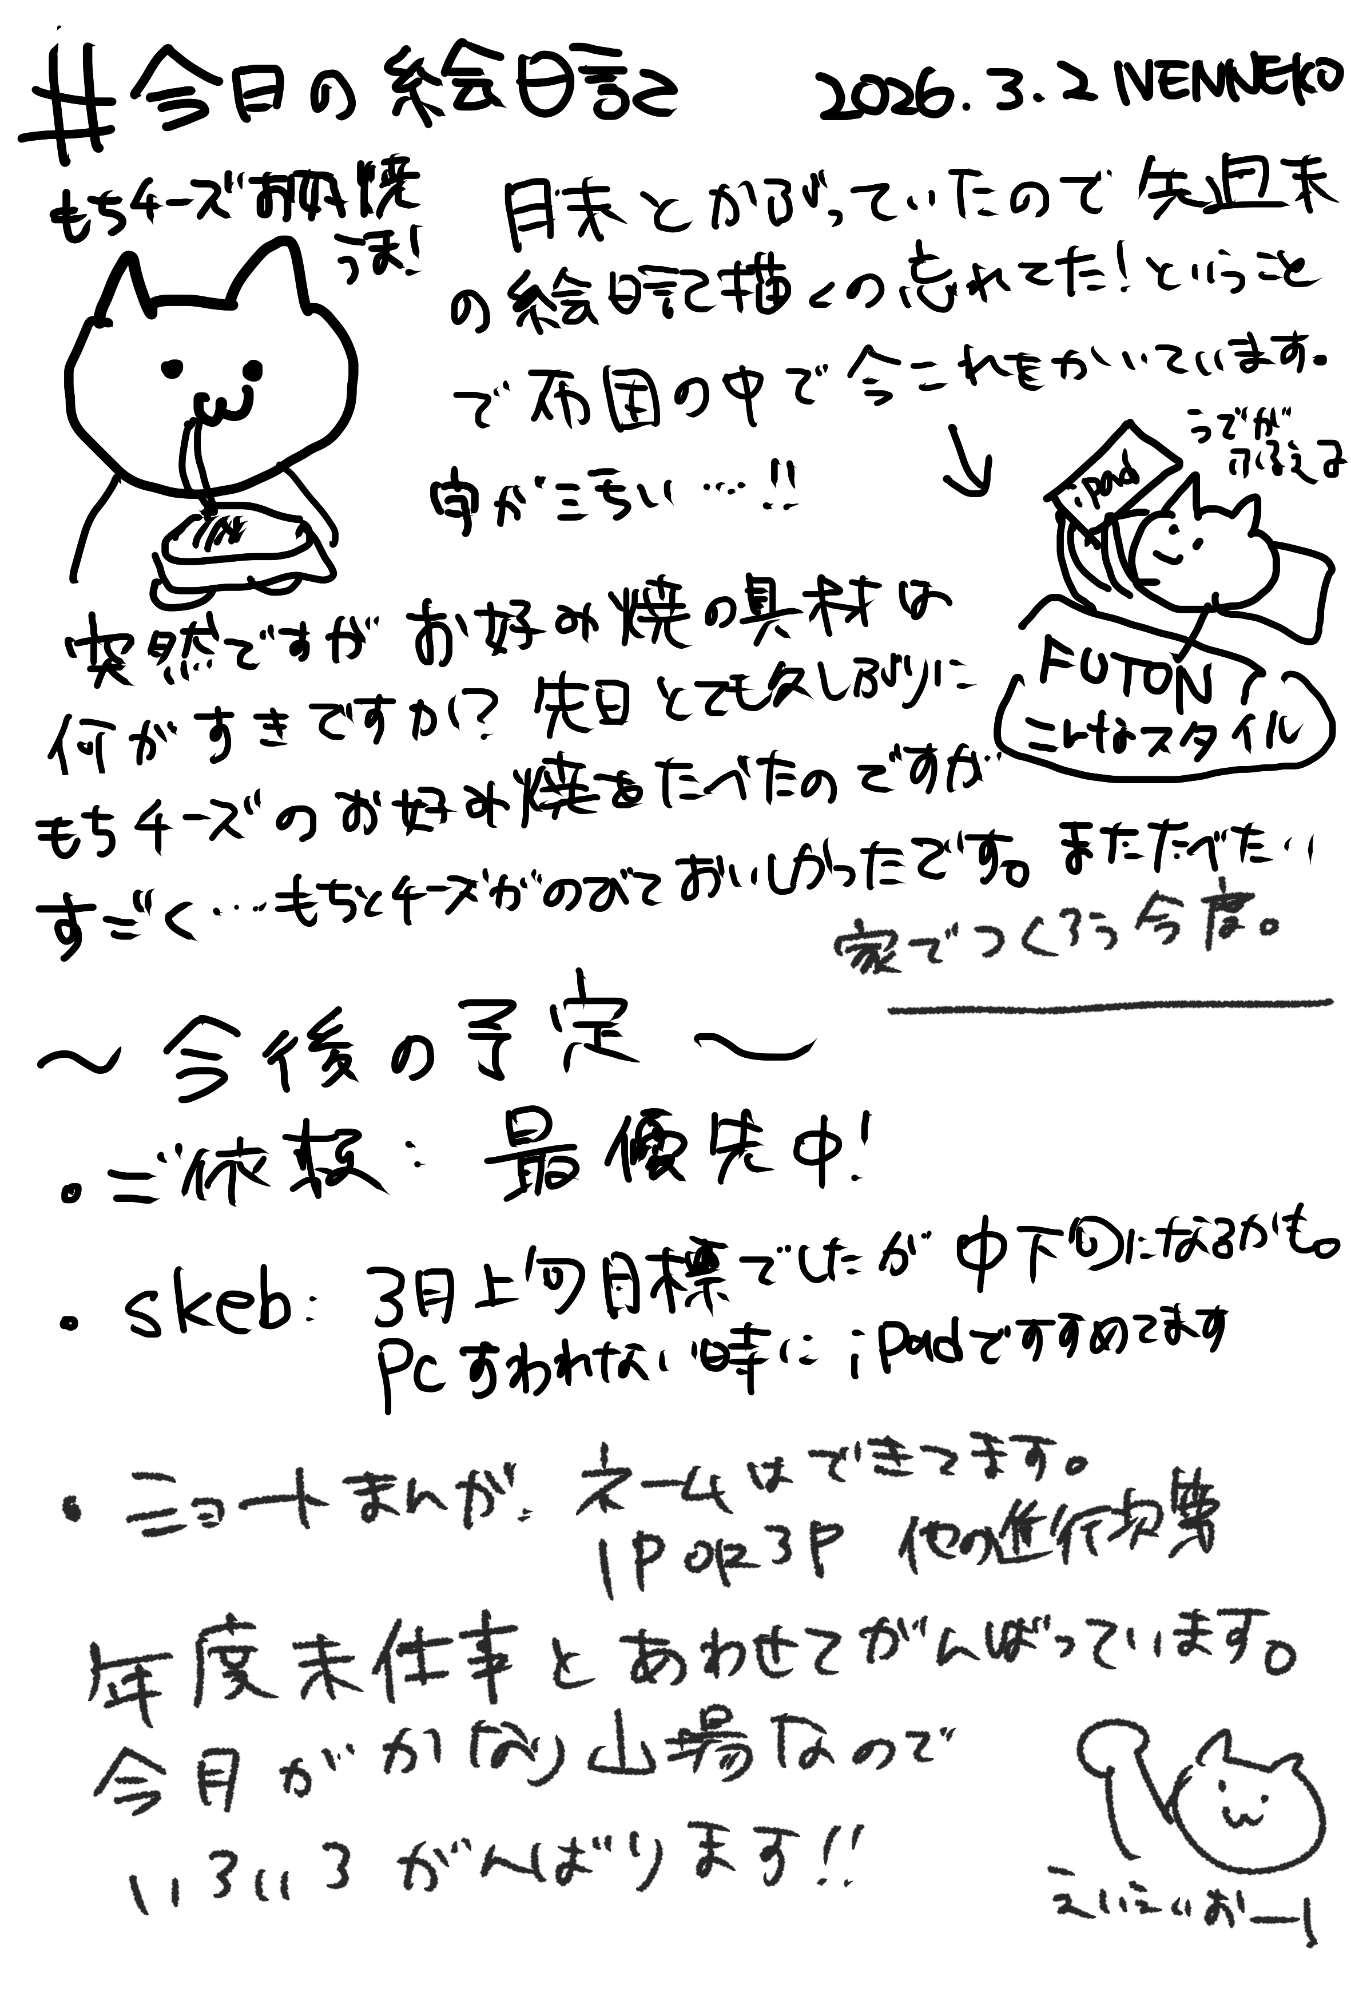 #今日の絵日記 2026.3.2 NENNEKO
もちチーズお好焼
うま!
月末とかぶっていたので先週末
の絵日記描くの忘れてた!ということ
で布団の中で今これをかいています。
字がきちい…!!
うでが
ふるえる
iPad
FUTON
こんなスタイル
突然ですがお好み焼の具材は
何がすきですか?先日とても久しぶりに
もちチーズのお好み焼をたべたのですが
すごく…もちとチーズがのびておいしかったです。またたべたい
家でつくろう今度。
~今後の予定~
・ご依頼:最優先中!
・skeb:3月上旬目標でしたが中下旬になるかも。
PCすわれない時にiPadですすめてます
・ショートまんが:ネームはできてます。
1P or 3P 他の進行次第
年度末仕事とあわせてがんばっています。
今月がかなり山場なので
いろいろがんばります!!
えいえいおーー!